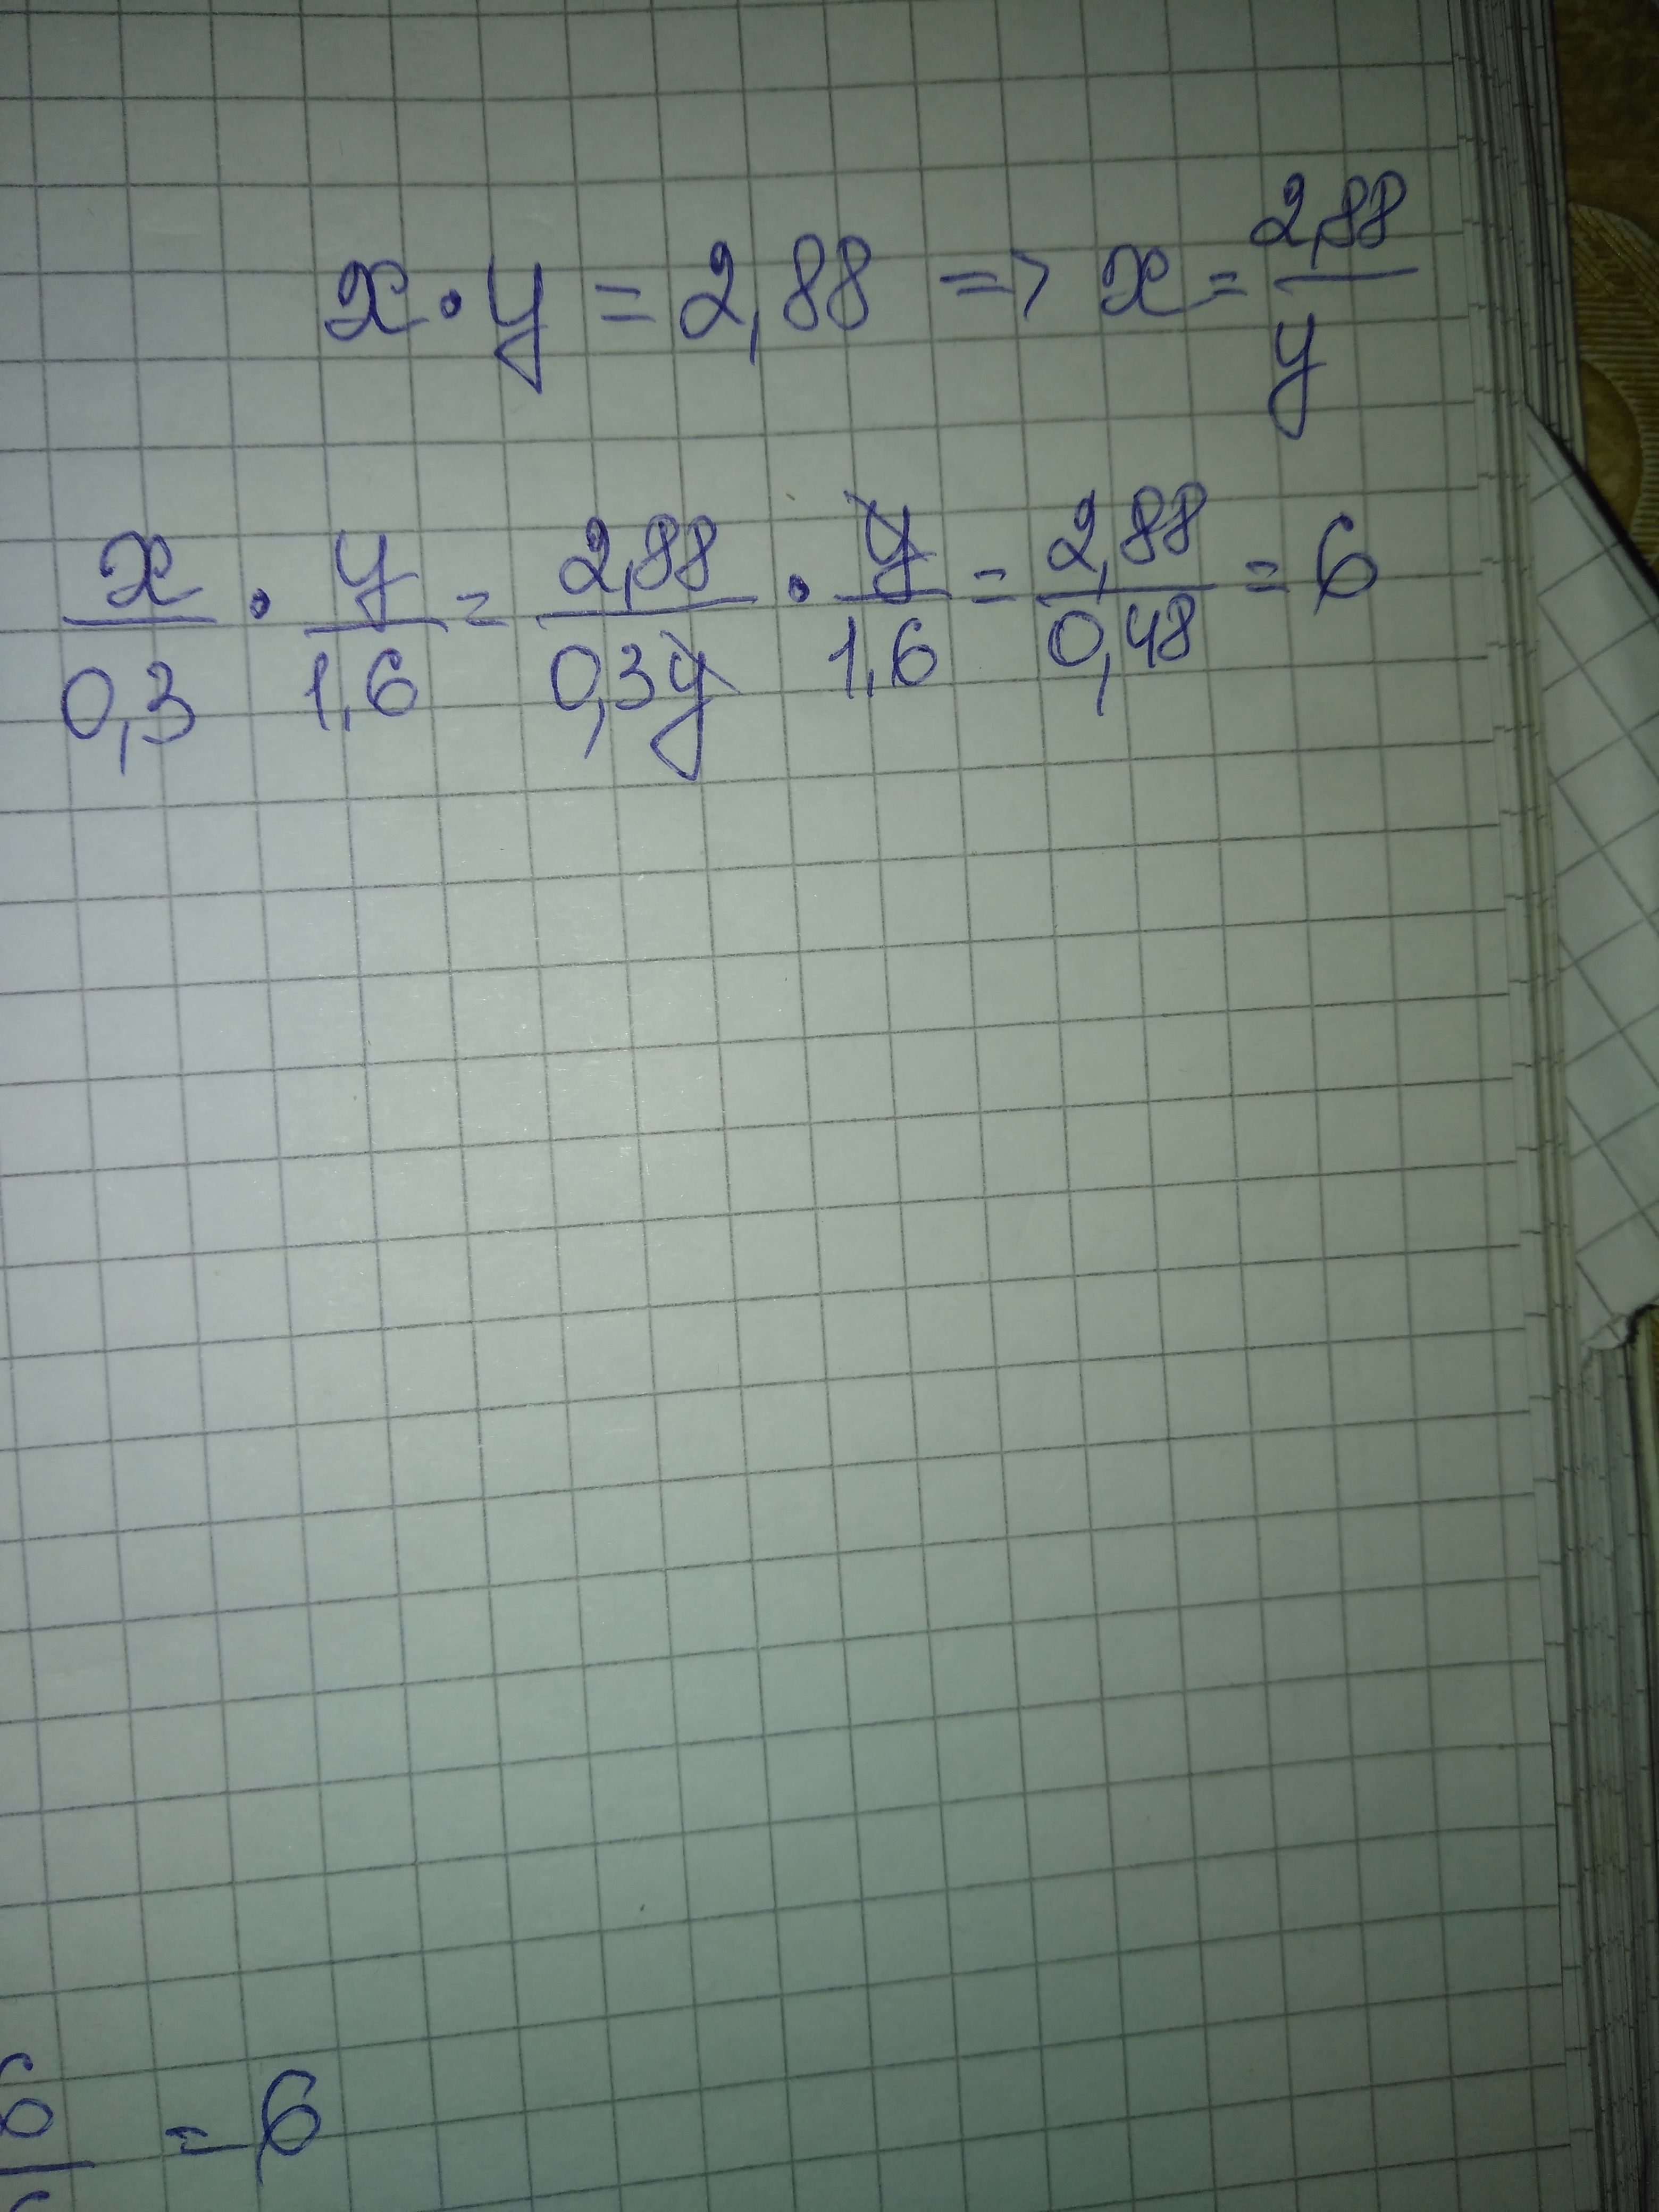 x · y = 2,88 => x = 2,88/y
x/0,3 · y/1,6 = 2,88/0,3y · y/1,6 = 2,88/0,48 = 6
6 = 6